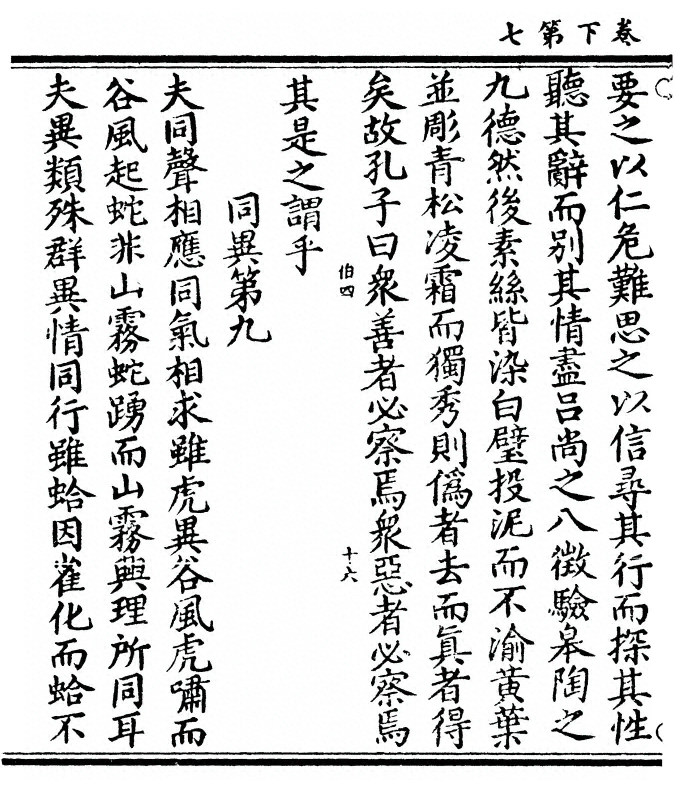 卷下第七
要之以仁危難思之以信尋其行而探其性
聽其辭而別其情盡呂尚之八徵驗皋陶之
九德然後素絲皆染白璧投泥而不渝黃葉
並彫青松凌霜而獨秀則僞者去而眞者得
矣故孔子曰衆善者必察焉衆惡者必察焉
伯四
十六
其是之謂乎
同異第九
夫同聲相應同氣相求雖虎異谷風虎嘯而
谷風起蛇非山霧蛇踴而山霧興理所同耳
夫異類殊群異情同行雖蛤因雀化而蛤不